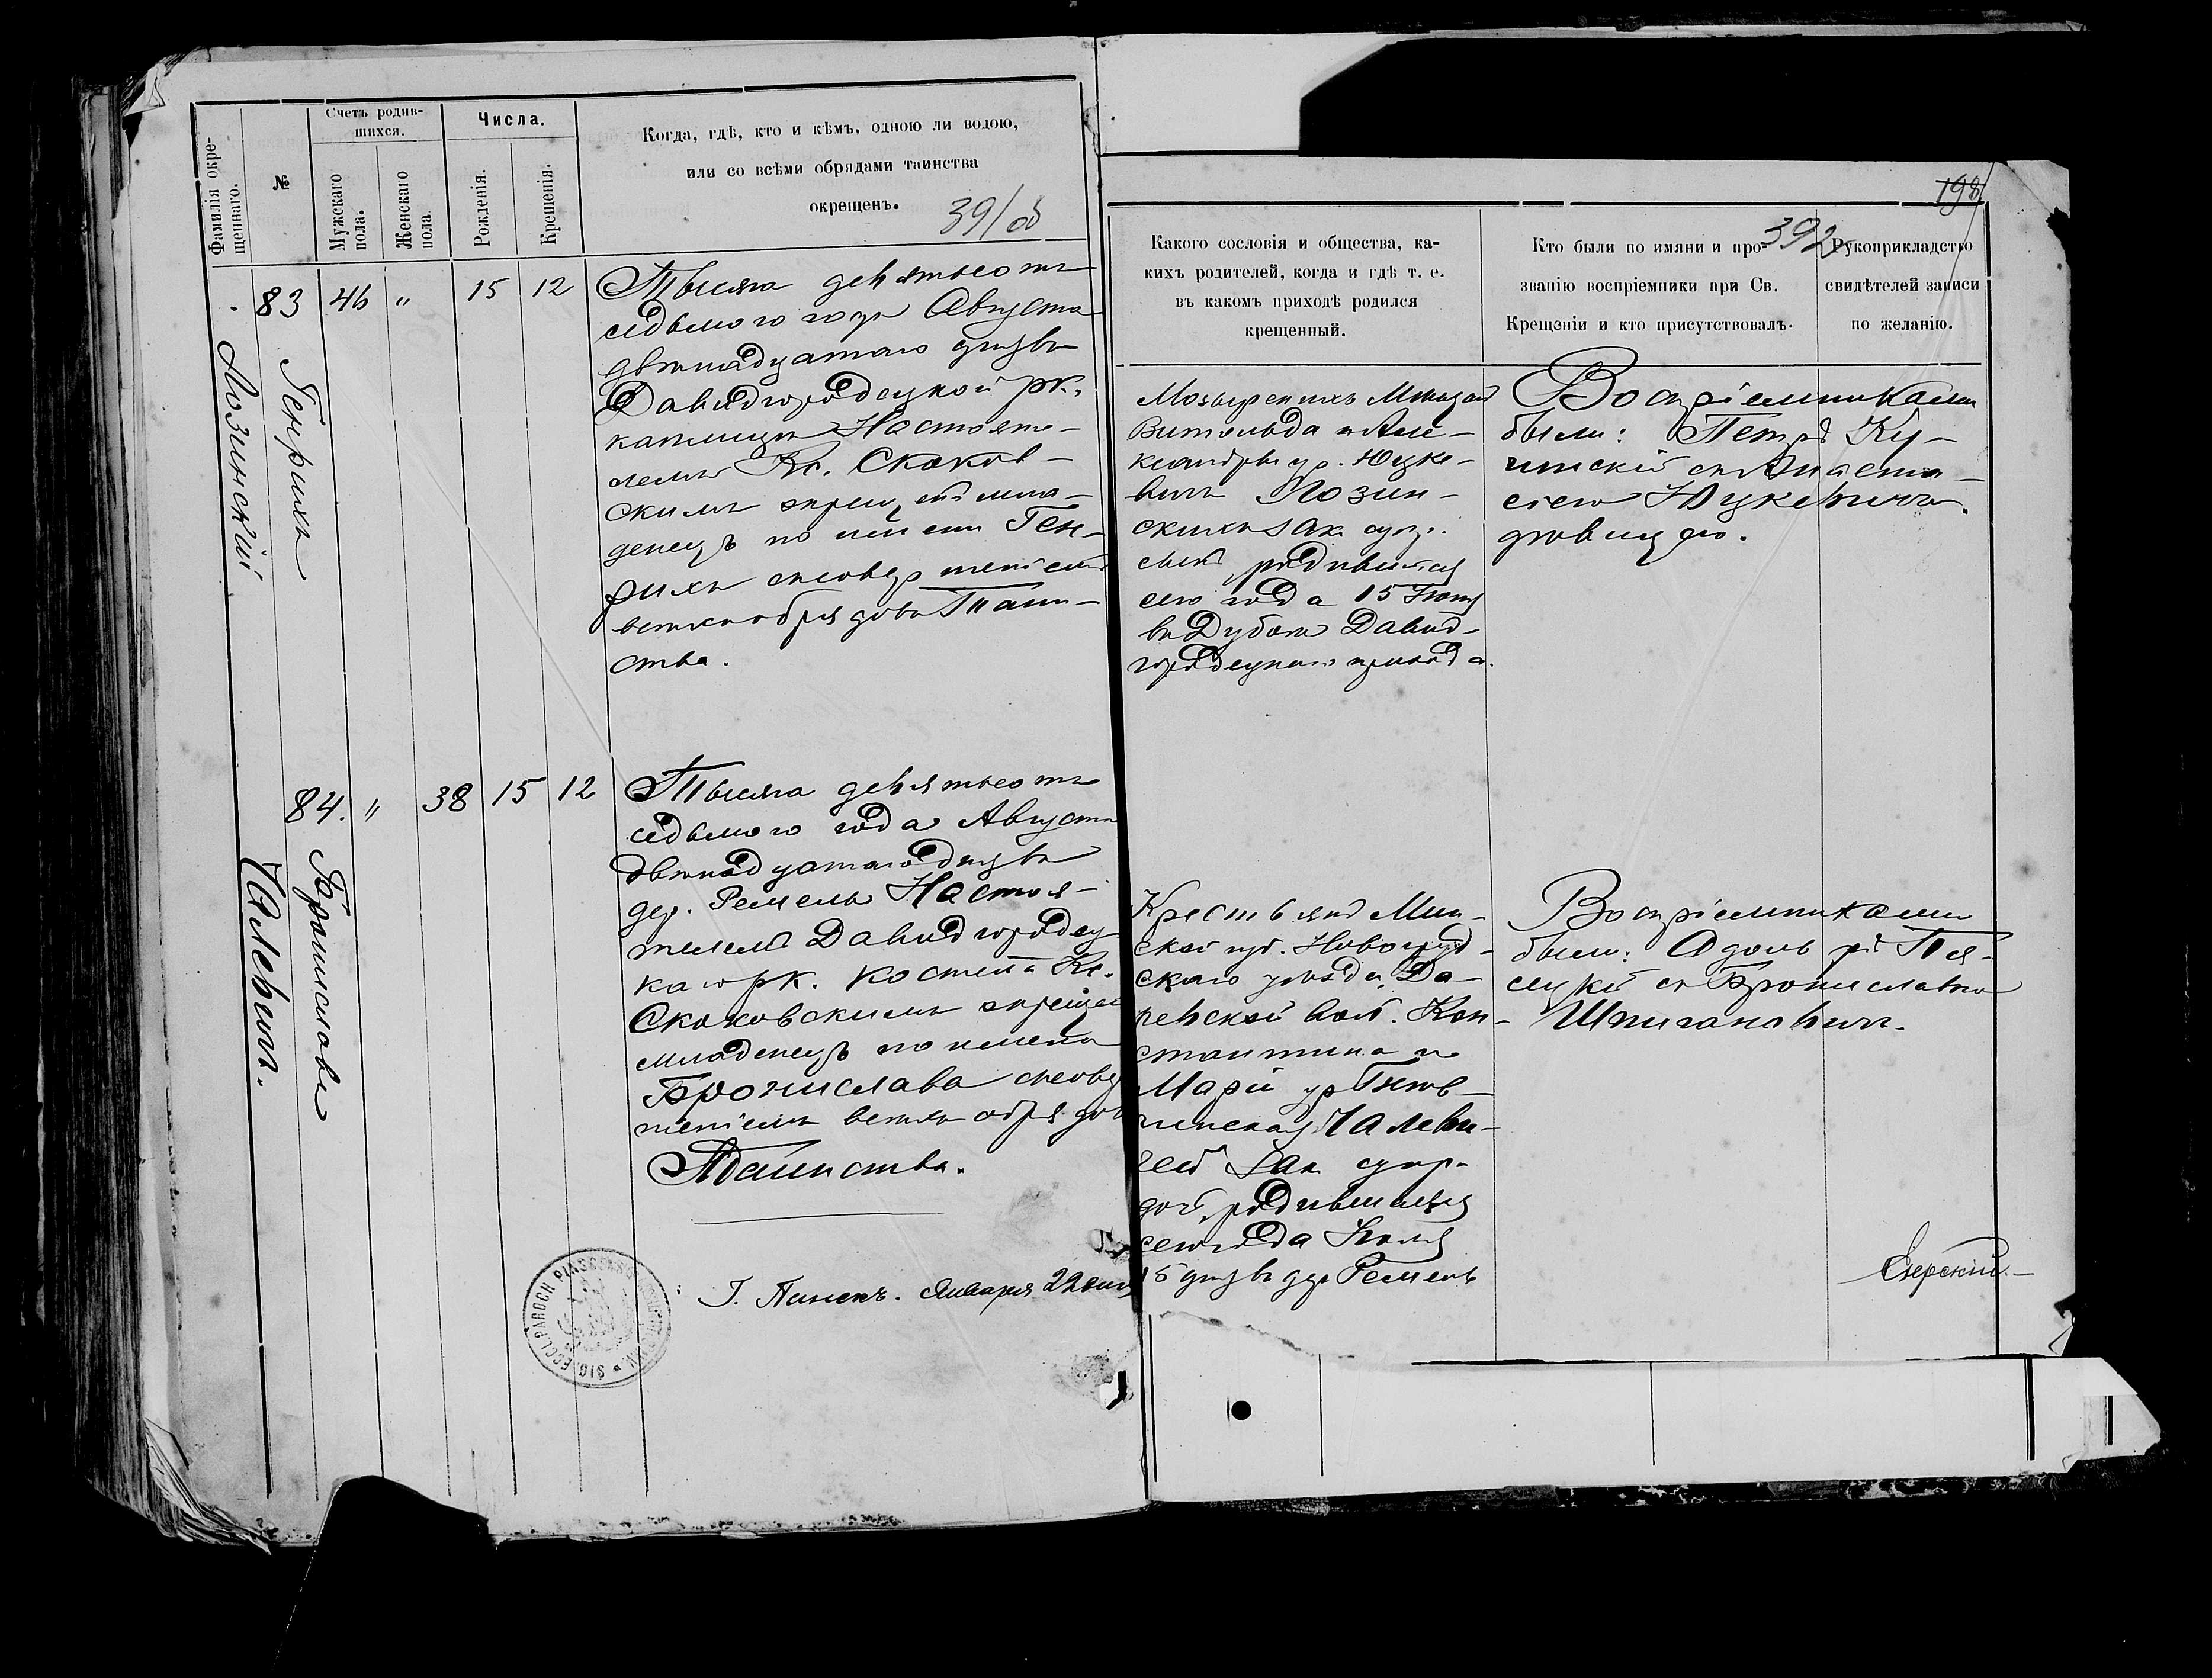 Фамилія окре-
щеннаго.
№
Счетъ родив-
шихся.
Мужскаго
пола.
Женскаго
пола.
Числа.
Рожденія.
Крещенія.
Когда, гдѣ, кто и кѣмъ, одною ли водою,
или со всѣми обрядами таинства
окрещенъ.
39/об
83
46
"
15
12
Генрихъ
Лозинскій
Тысяча девятьсотъ
седьмого года Августа
двѣнадцатаго дня въ
Давидгородецкой рк.
каплицѣ Настояте-
лемъ Кс. Скоков-
скимъ окрещенъ мла-
денецъ по имени Ген-
рихъ съ совершеніемъ
всѣхъ обрядовъ Таин-
ства.
84.
"
38
15
12
Бронислава
Чалевичъ.
Тысяча девятьсотъ
седьмого года Августа
двѣнадцатаго дня въ
дер. Ремель Настоя-
телемъ Давидгородец-
каго рк. костела Кс.
Скоковскимъ окрещенъ
младенецъ по имени
Бронислава съ совер
шеніемъ всѣхъ обрядовъ
Таинства.
Г. Пинскъ. Января 22 дня
SIG. ECCL. PAROCH. PINSCENSIS
198
392
Какого сословія и общества, ка-
кихъ родителей, когда и гдѣ т. е.
въ какомъ приходѣ родился
крещенный.
Кто были по имяни и про-
званію воспріемники при Св.
Крещеніи и кто присутствовалъ.
Рукоприкладство
свидѣтелей записи
по желанію.
Мозырскихъ Мѣщанъ
Витольда и Але-
ксандры ур. Юцке-
вичъ Лозин-
скихъ зак. супр.
сынъ, родившійся
сего года 15 Іюля
въ Дубой Давид-
городецкаго прихода.
Воспріемниками
были: Петръ Ку-
чинскій съ Анаста-
сіею Юцкевичъ
дѣвицею.
Крестьянъ Мин-
ской губ. Новогруд-
скаго уѣзда, Да-
ревской вол. Кон-
стантина и
Маріи ур.
Чалеви-
чей зак. супр.
дочь, родившаяся
сего года Іюля
15 дня въ дер. Ремель
Воспріемниками
были: Адольфъ
съ Брониславою
Шпигановичъ.
Езерскій.